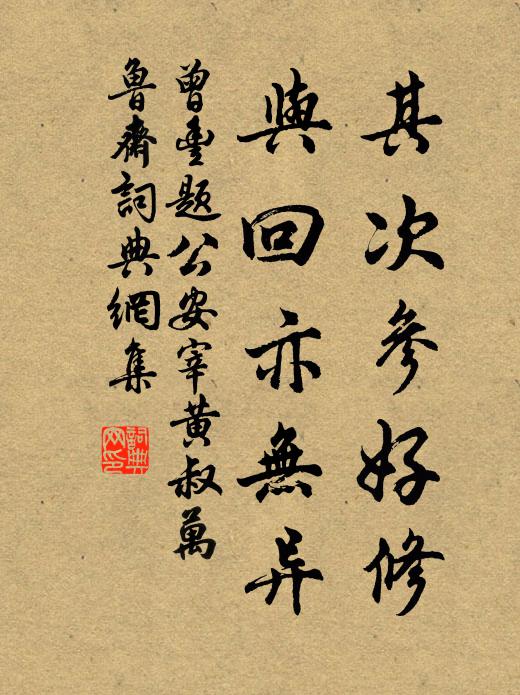 其次參好修
與回亦無异
曾豐題公安宰黃叔萬
魯齋詞典網集
詞典網印